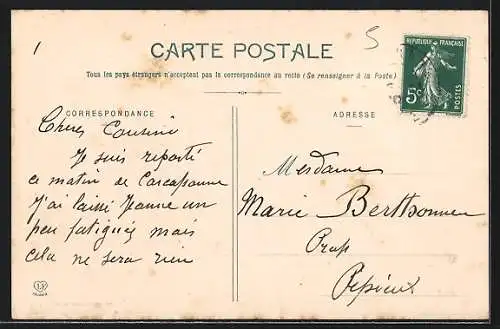 1
5
CARTE POSTALE
Tous les pays étrangers n'acceptent pas la correspondance au recto (Se renseigner à la Poste)
REPUBLIQUE FRANÇAISE
5c
POSTES
CORRESPONDANCE
Cheres Cousine
Je suis reparti
ce matin de Carcassonne
J'ai laissé Jeanne un
peu fatiguée mais
cela ne sera rien
ADRESSE
Mesdames
Marie
Prop
Pépieux